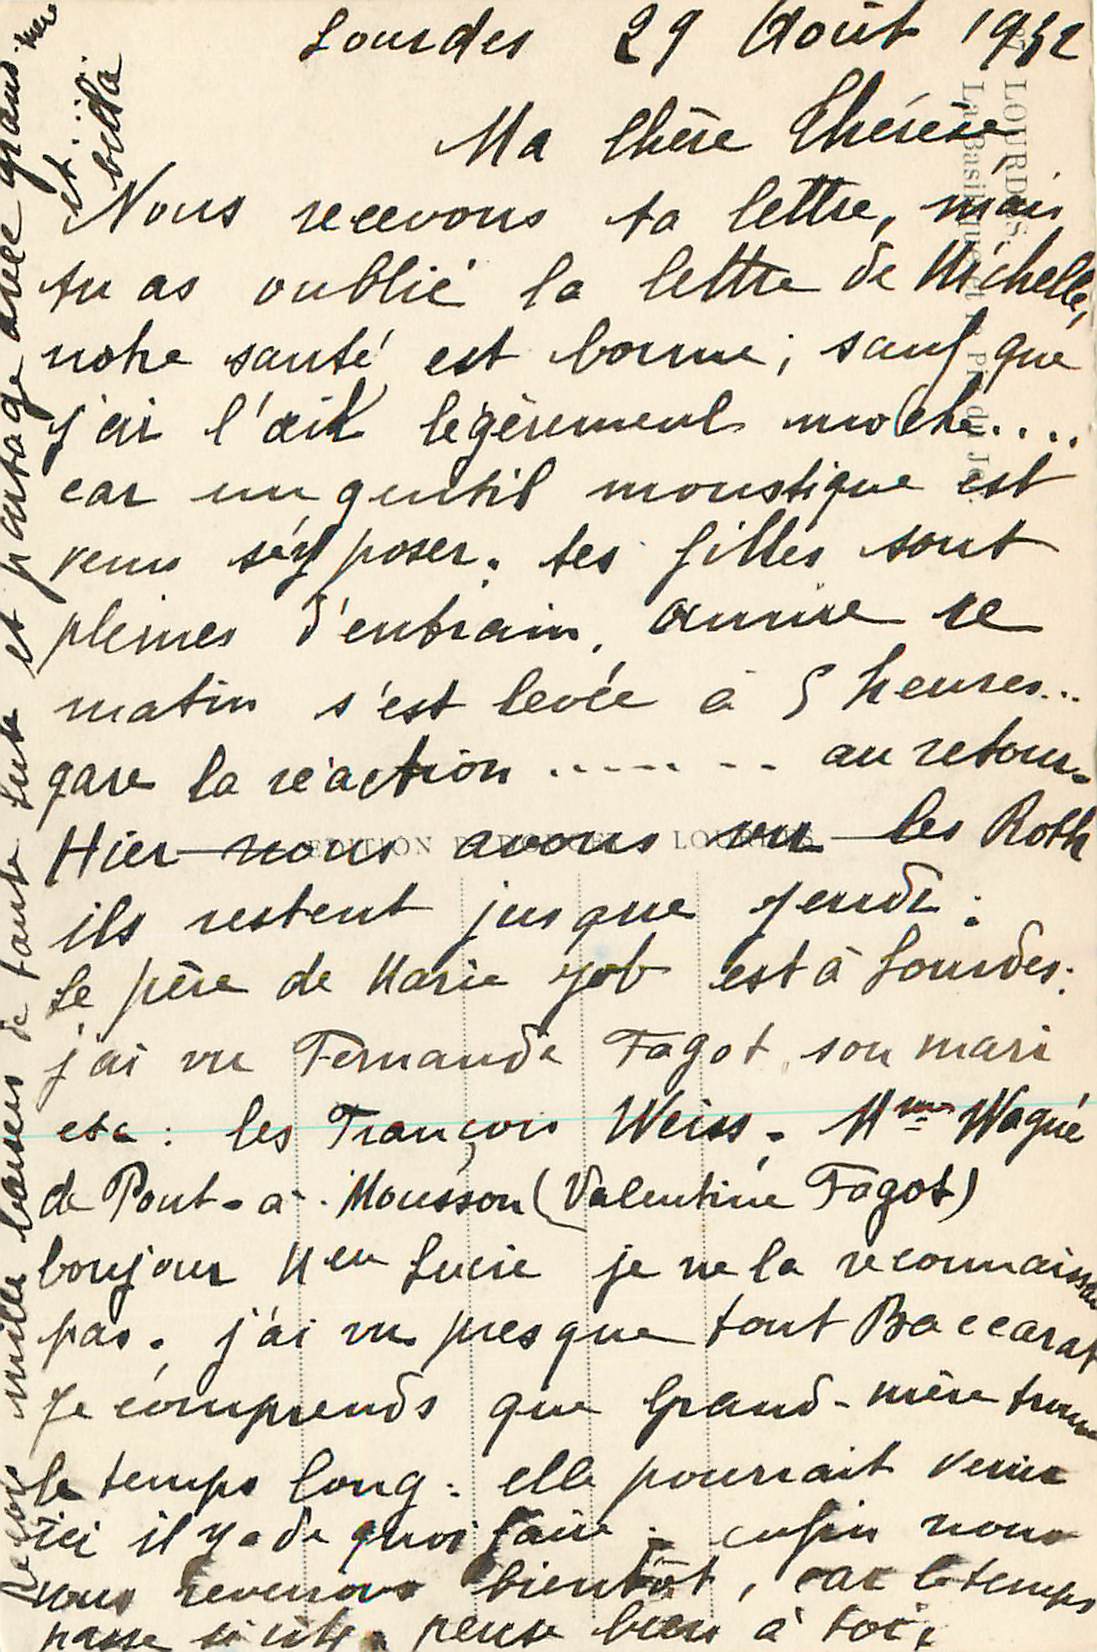 Lourdes 29 Août 1932
Ma chère Thérèse,
Nous recevons ta lettre, mais
tu as oublié la lettre de Michelle,
notre santé est bonne ; sauf que
j'ai l'œil légèrement moche....
car un gentil moustique est
venu s'y poser. tes filles sont
pleines d'entrain, annie ce
matin s'est levée à 5 heures...
gare la réaction ........ au retour.
Hier nous avons vu les Roth
ils restent jusque jeudi :
Le père de Marie Job est à Lourdes.
j'ai vu Fernande Fagot, son mari
etc : les François Weiss. Mme Wagué
de Pont-à-Mousson (Valentine Fagot)
bonjour Mlle Lucie je ne la reconnaissais
pas. j'ai vu presque tout Baccarat
Je comprends que Grand-mère trouve
le temps long : elle pourrait venir
ici il y a de quoi faire. enfin nous
vous reverrons bientôt, car le temps
passe si vite. pense bien à toi.
Reçois mille baisers de tante Lute et partage avec grand'mère
et .....
LOURDES.
La Basilique et
EDITION LOURDES